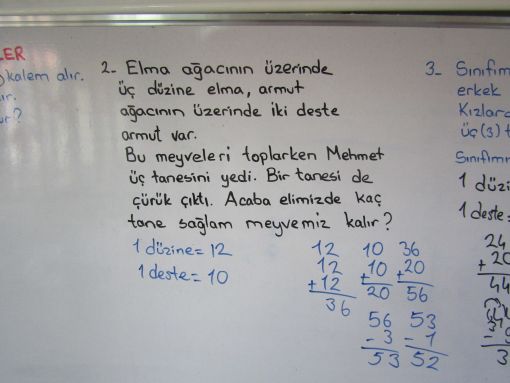 LER
kalem alır.
ır.
ur?
2- Elma ağacının üzerinde
üç düzine elma, armut
ağacının üzerinde iki deste
armut var.
Bu meyveleri toplarken Mehmet
üç tanesini yedi. Bir tanesi de
çürük çıktı. Acaba elimizde kaç
tane sağlam meyvemiz kalır?
1 düzine = 12
1 deste = 10
12
12
+ 12
36
10
+ 10
20
36
+ 20
56
56
- 3
53
53
- 1
52
3- Sınıfım
erkek
Kızlar
üç (3) t
Sınıfım
1 düzi
1 deste =
24
+ 20
44